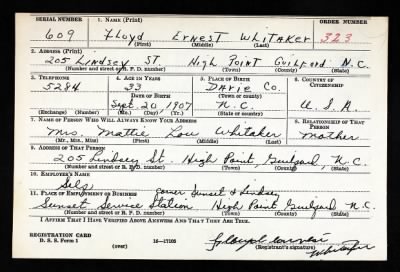 SERIAL NUMBER 1. NAME (Print) ORDER NUMBER
609 Floyd Ernest Whitaker 323
(First) (Middle) (Last)
2. ADDRESS (Print)
205 Lindsey St. High Point Guilford N.C.
(Number and street or R. F. D. number) (Town) (County) (State)
3. TELEPHONE 4. AGE IN YEARS 5. PLACE OF BIRTH 6. COUNTRY OF CITIZENSHIP
5284 33 Davie Co.
DATE OF BIRTH (Town or county)
Sept. 20, 1907 N.C. U.S.A.
(Exchange) (Number) (Mo.) (Day) (Yr.) (State or country)
7. NAME OF PERSON WHO WILL ALWAYS KNOW YOUR ADDRESS 8. RELATIONSHIP OF THAT PERSON
Mrs. Mattie Lou Whitaker Mother
(Mr., Mrs., Miss) (First) (Middle) (Last)
9. ADDRESS OF THAT PERSON
205 Lindsey St. High Point Guilford N.C.
(Number and street or R. F. D. number) (Town) (County) (State)
10. EMPLOYER'S NAME
Self Corner Sunset & Lindsey
11. PLACE OF EMPLOYMENT OR BUSINESS
Sunset Service Station High Point Guilford N.C.
(Number and street or R. F. D. number) (Town) (County) (State)
I AFFIRM THAT I HAVE VERIFIED ABOVE ANSWERS AND THAT THEY ARE TRUE.
REGISTRATION CARD
D. S. S. Form 1 (over) 16—17105 Floyd Ernest Whitaker
(Registrant's signature)